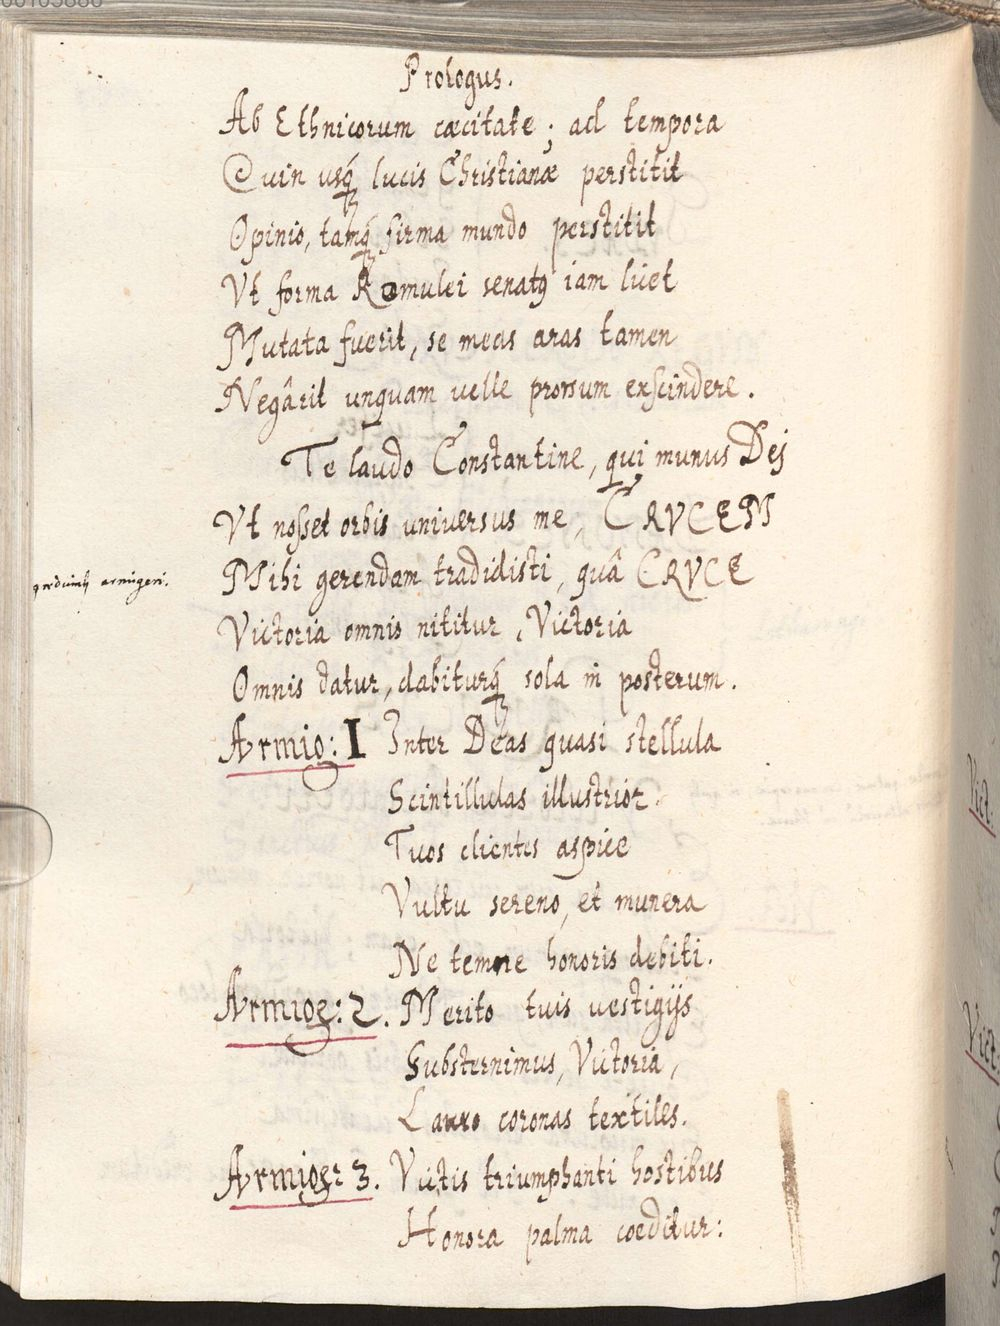 Prologus.
Ab Ethnicorum cæcitate; ad tempora
Quin usq́ꝫ lucis Christianæ perstitit
Opinio, tamq́ꝫ firma mundo perstitit
Vt forma Romulei senatꝰ iam licet
Mutata fuerit, se meas aras tamen
Negârit unquam uelle prorsum exscindere.
Te laudo Constantine, qui munus Dej
Vt nosset orbis universus me, CRVCEM
Mihi gerendam tradidisti, quâ CRVCE
Victoria omnis nititur, Victoria
Omnis datur, dabiturq́ꝫ sola in posterum.
armigeri.
Armig: I Inter Deas quasi stellula
Scintillulas illustrior
Tuos clientes aspice
Vultu sereno, et munera
Ne temne honoris debiti.
Armiger: 2. Merito tuis uestigijs
Substernimus, Victoria,
Lauro coronas textiles.
Armiger 3. Victis triumphanti hostibus
Honora palma coeditur:
Vict.
Vict.